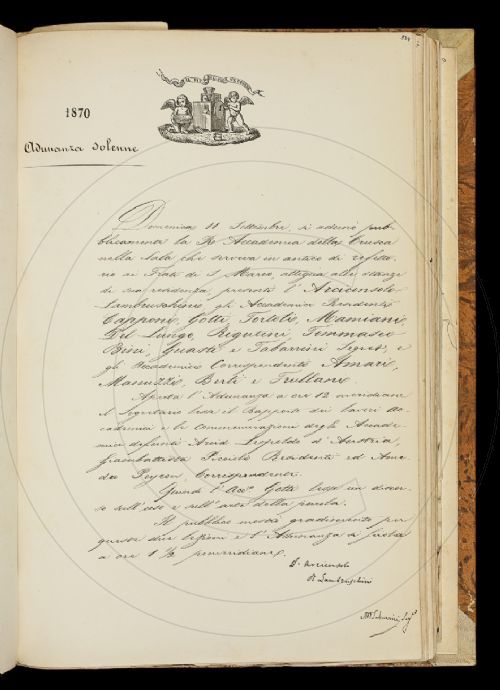 1870
Adunanza solenne
Domenica 11 Settembre, si adunò pub-
blicamente la R. Accademia della Crusca
nella Sala che serviva in antico di refetto-
rio ai Frati di S. Marco, attigua alle stanze
di sua residenza, presenti l'Arciconsolo
Lambruschini, gli Accademici Residenti
Capponi, Gotti, Tortoli, Mamiani,
Del Lungo, Rigutini, Tommaseo
Bini, Guasti e Tabarrini Segret., e
gli Accademici Corrispondenti Amari,
Manuzzi, Berti e Trullani.
Aperta l'Adunanza a ore 12 meridiane
il Segretario lesse il Rapporto dei lavori Ac-
cademici e le Commemorazioni degli Accade-
mici defunti Arcid. Leopoldo d'Austria,
Giambattista Residenti ed Ame-
deo Peyron, Corrispondente.
Quindi l'Acc.º Gotti lesse un discor-
so sull'uso e sull'arte della parola.
Il pubblico mostrò gradimento per
queste due lezioni e l'Adunanza fu sciolta
a ore 1 ½ pomeridiane.
L'Arciconsolo
R. Lambruschini
M. Tabarrini, Seg.º